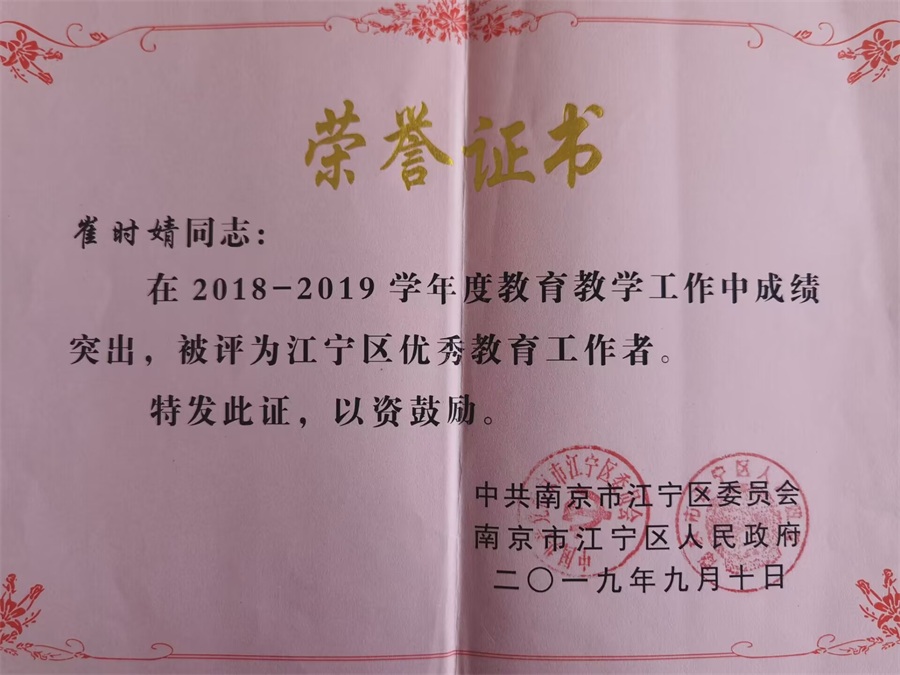 荣誉证书
崔时婧同志：
在2018-2019学年度教育教学工作中成绩
突出，被评为江宁区优秀教育工作者。
特发此证，以资鼓励。
中共南京市江宁区委员会
南京市江宁区人民政府
二〇一九年九月十日